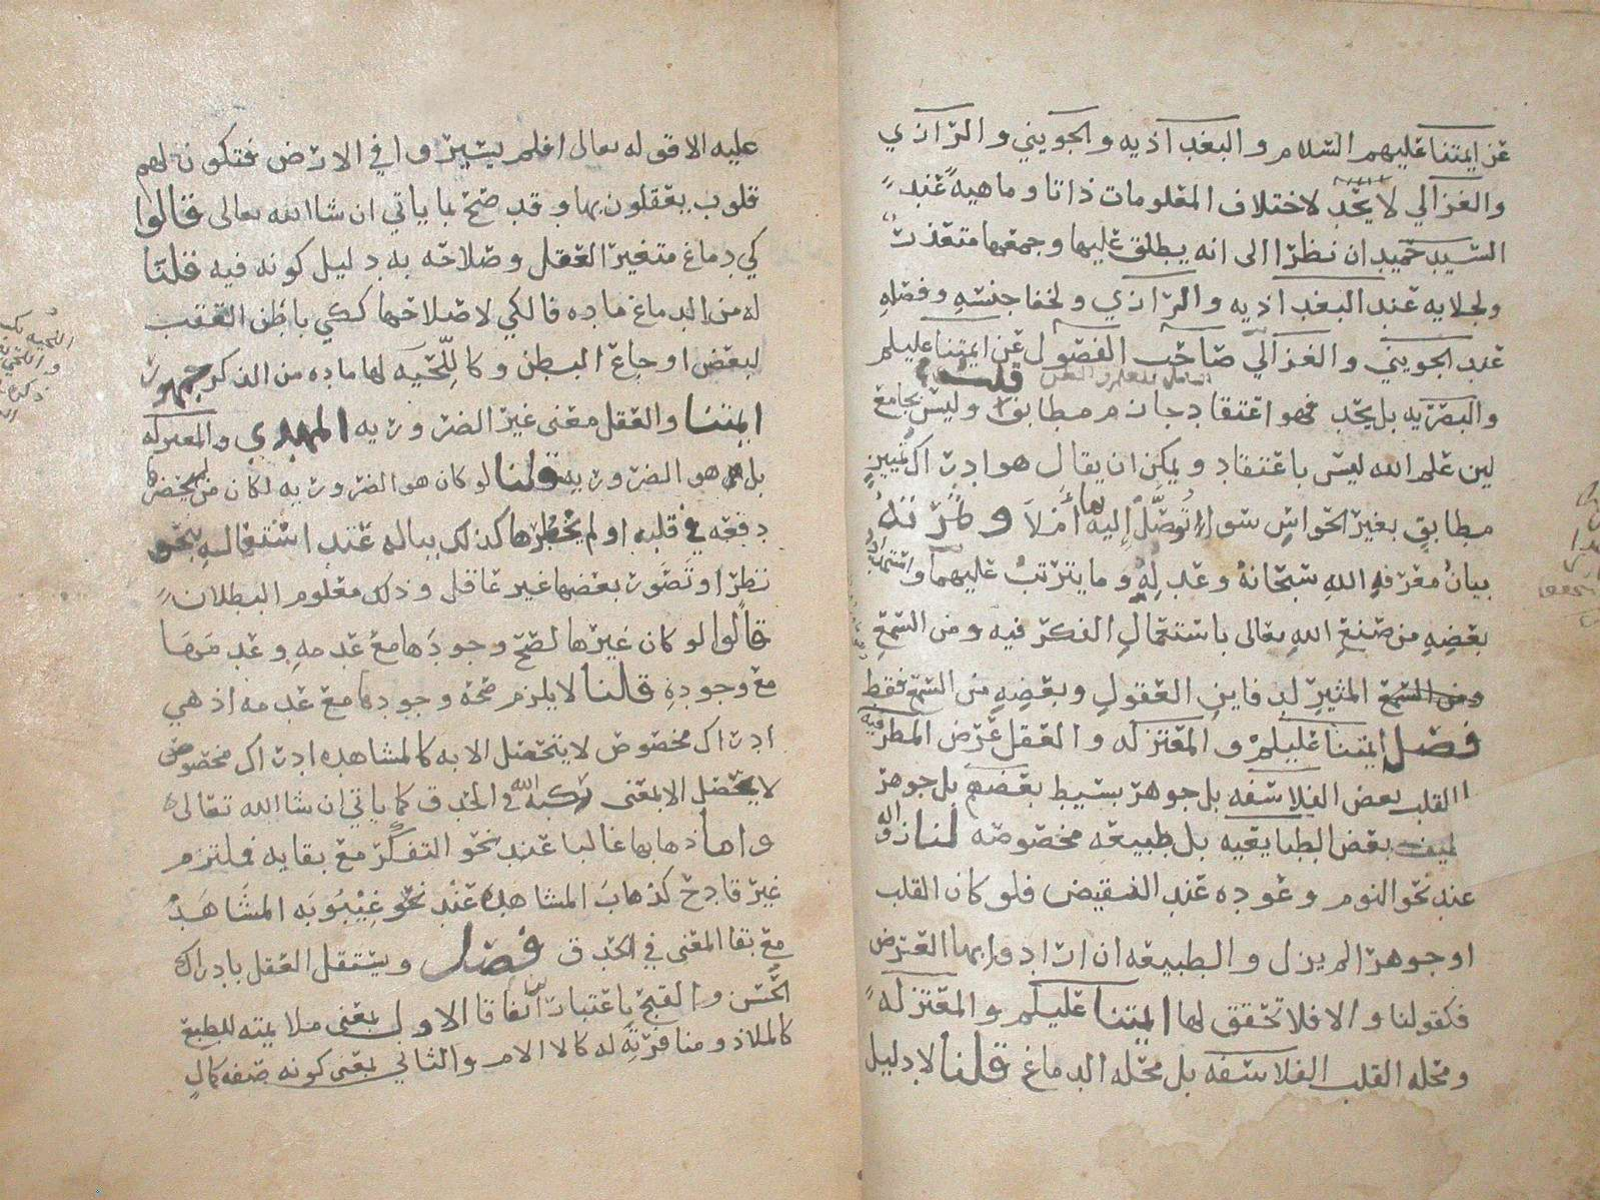 عن ايمتنا عليهم السلام والبغداذيه والجويني والرازي
والغزالي لا يحد لاختلاف المعلومات ذاتا وماهيه عند
السيد حميدان نظرا الى انه يطلق عليها وجمعها متعذر
ولجلايه عند البغداذيه والرازي ولخفا جنسه وفصله
عند الجويني والغزالي صاحب الفصول عن ايمتنا عليلم
والبصريه بل يحد فهو اعتقاد جازم مطابق قلت وليس بجامع
لين علم الله ليس باعتقاد ويمكن ان يقال هو ادراك تمييز
مطابق بغير الحواس سوا تُوصِّل إليه بها أم لا وثمرته
بيان معرفه الله سبحانه وعدله وما يترتب عليهما واستمداد
بعضه من صنع الله تعالى باستعمال الفكر فيه ومن السمع
المثير لدفاين العقول وبعضه من السمع فقط
فصل ايمتنا عليلم والمعتزله والعقل عرض المطرفيه
القلب بعض الفلاسفه بل جوهر بسيط بعضهم بل جوهر
لطيف بعض الطبايعيه بل طبيعه مخصوصه لنا زواله
عند نحو النوم وعوده عند النقيض فلو كان القلب
او جوهرا لم يزل والطبيعه ان ارادوا بها العرض
فكقولنا والا فلا تحقق لها ايمتنا عليلم والمعتزله
ومحله القلب الفلاسفه بل محله الدماغ قلنا لا دليل
عليه الا قوله تعالى افلم يسيروا في الارض فتكون لهم
قلوب يعقلون بها وقد صح بما ياتي ان شا الله تعالى قالوا
كي دماغ متغير العقل وصلاحه به دليل كونه فيه قلنا
له من الدماغ ماده فالكي لاصلاحها ككي باطن العقب
لبعض اوجاع البطن وكاللّحيه لها ماده من الذكر جمهور
ايمتنا والعقل معنى غير الضروريه المهدي والمعتزله
بل هو الضروريه قلنا لو كان هو الضروريه لكان من لم يحضرها
دفعه في قلبه او لم يخطرها كذلك بباله عند اشتغاله بنحو
نظر او تصور بعضها غير عاقل وذلك معلوم البطلان
قالوا لو كان غيرها لصح وجودها مع عدمه وعدمها
مع وجوده قلنا لا يلزم صحه وجودها مع عدمه اذ هي
ادراك مخصوص لا يتحصل الا به كالمشاهده ادراك مخصوص
لا يحصل الا بمعنى ركبه الله في الحدق كما ياتي ان شا الله تعالى
واما ذهابها غالبا عند نحو التفكر مع بقايه فلتزم
غير قادح كذهاب المشاهده عند نحو غيبوبه المشاهد
مع بقا المعنى في الحدق فصل ويستقل العقل بادراك
الحسن والقبح باعتبارين اتفاقا الاول بمعنى ملايمته للطبع
كالملاذ ومنافرته له كالالام والثاني بمعنى كونه صفه كمال